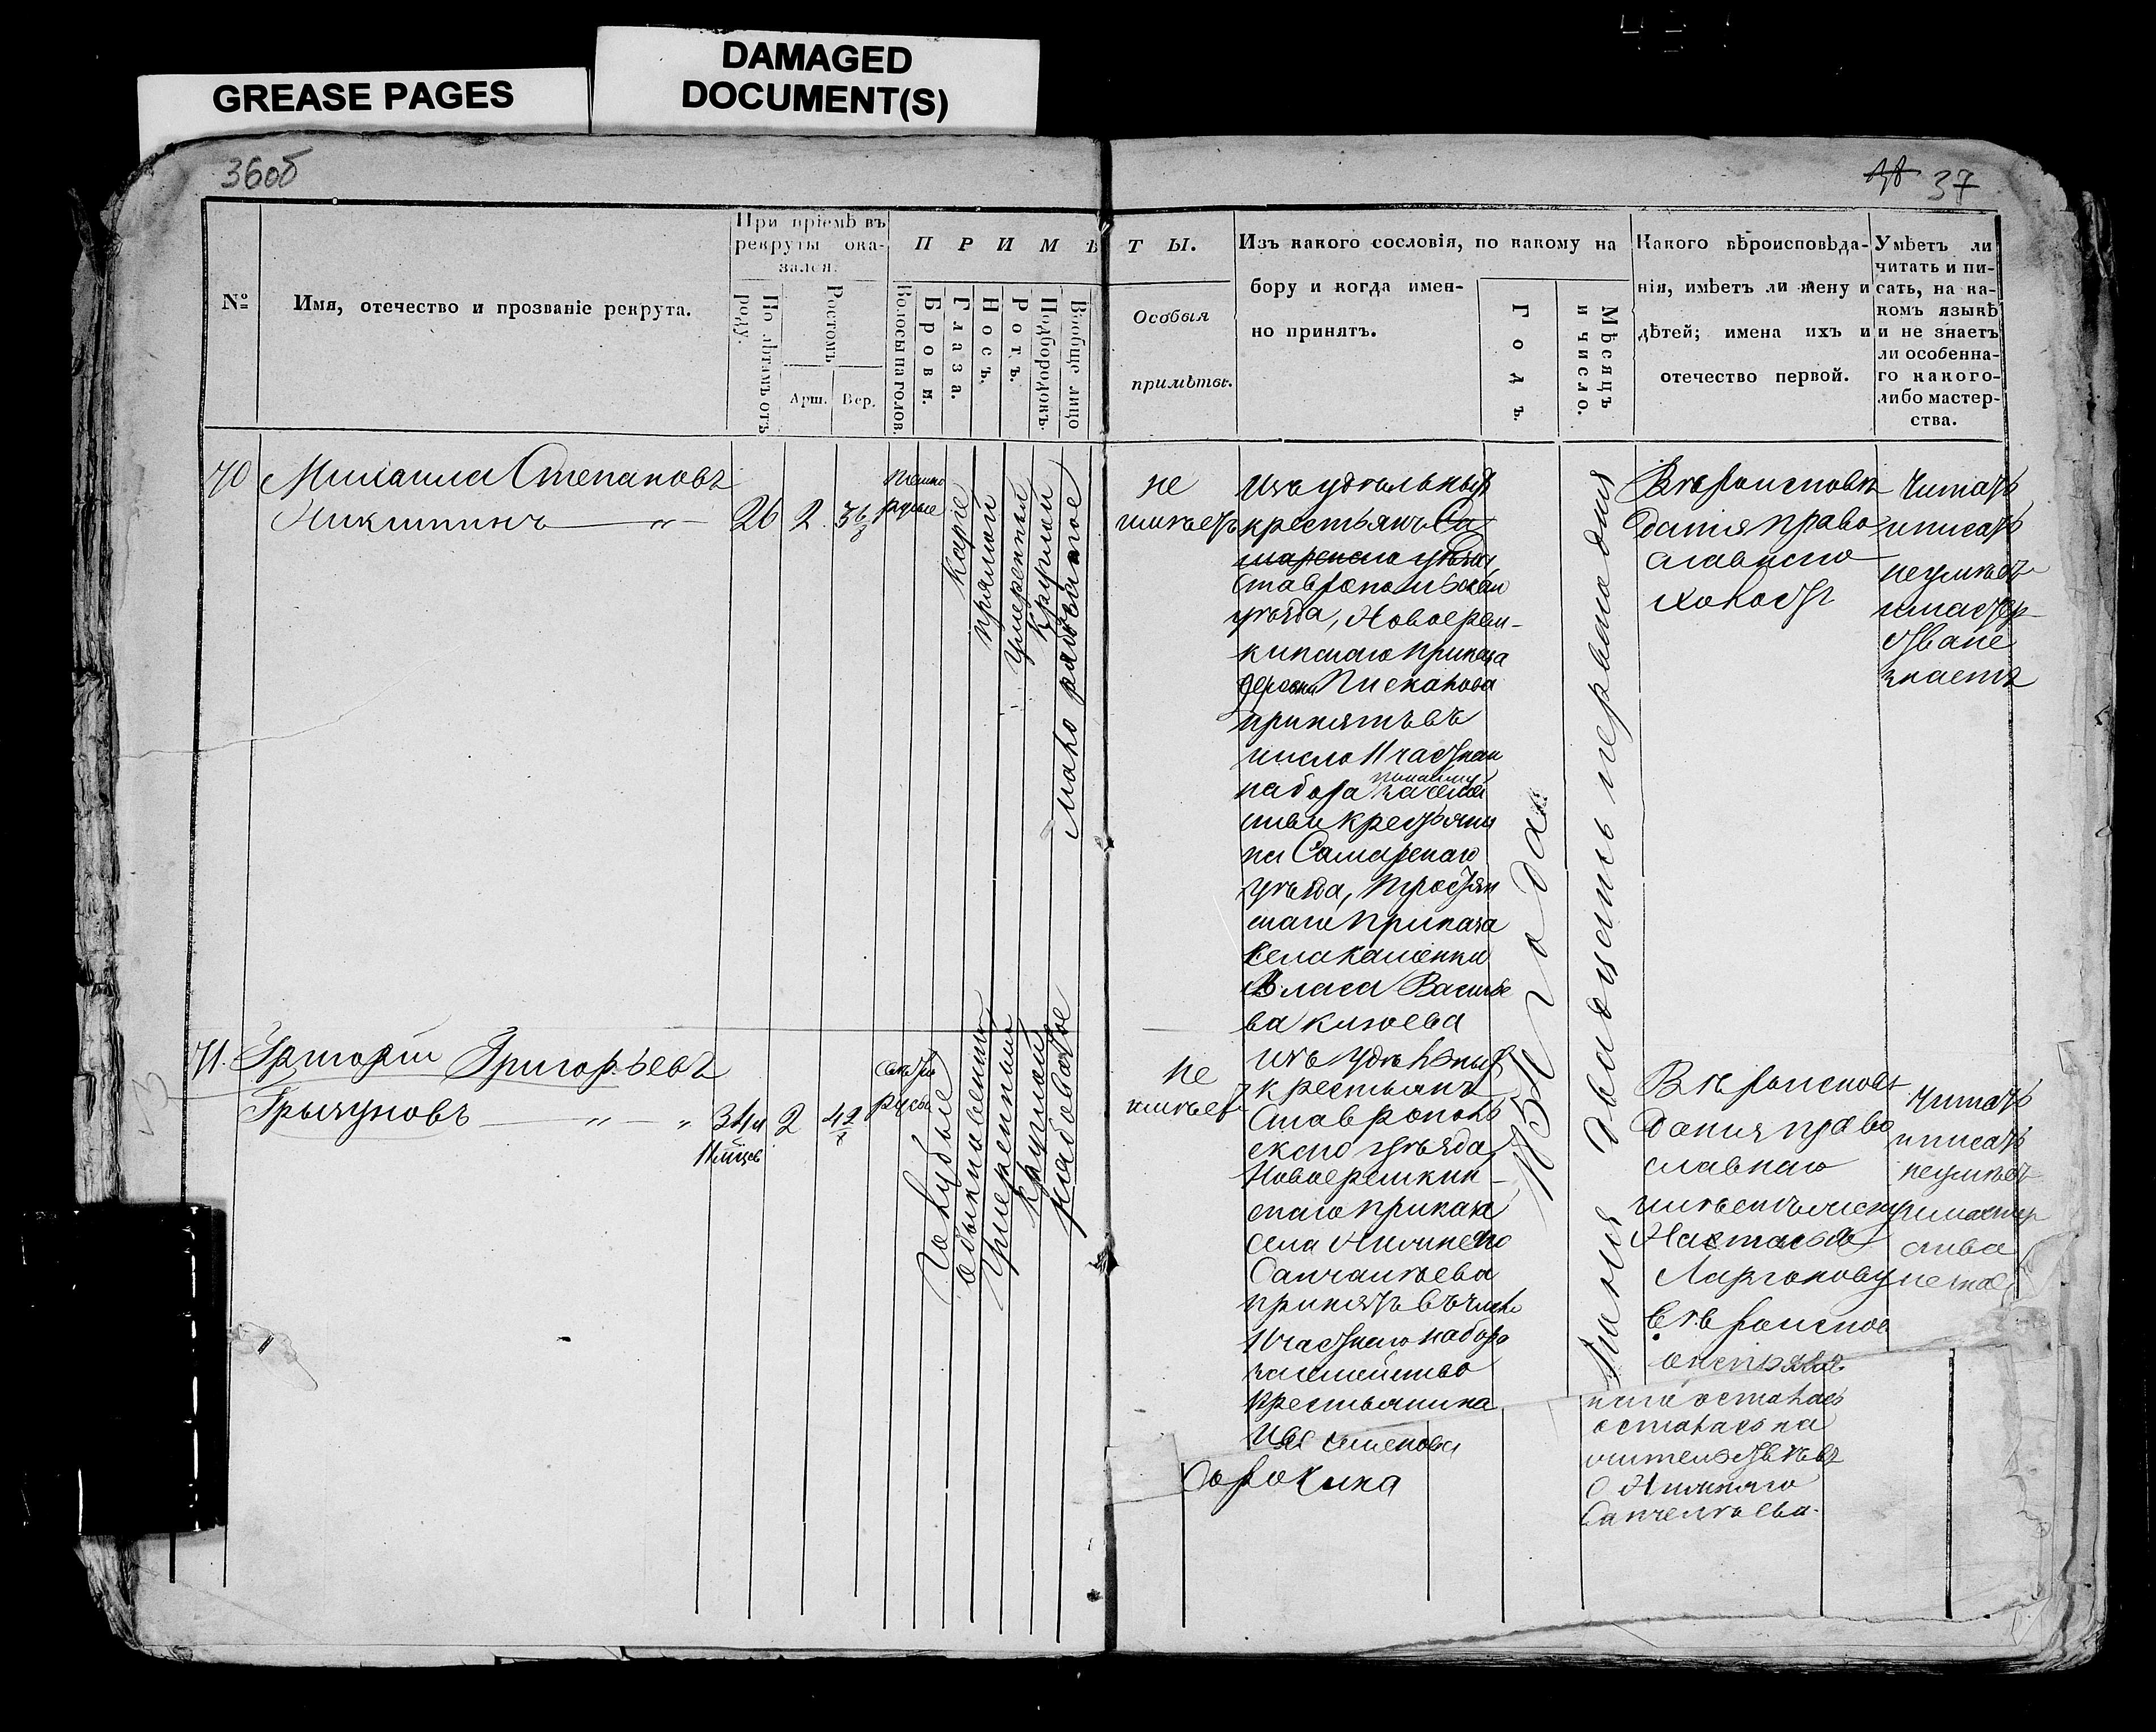 GREASE PAGES
DAMAGED
DOCUMENT(S)
36об
37
№
Имя, отечество и прозваніе рекрута.
При пріемѣ въ
рекруты ока-
зался.
По лѣтамъ отъ
роду.
Ростомъ
Арш.
Вер.
ПРИМѢ
Волосы на голов.
Брови.
Глаза.
Носъ.
Ротъ.
Подбородокъ.
Вообще лицо
ТЫ.
Особыя
примѣты.
Изъ какого сословія, по какому на
бору и когда имен-
но принятъ.
Годъ.
Мѣсяцъ
и число.
Какого вѣроисповѣда-
нія, имѣетъ ли жену и
дѣтей; имена ихъ и
отечество первой.
Умѣетъ ли
читать и пи-
сать, на ка-
комъ языкѣ
и не знаетъ
ли особенна-
го какого-
либо мастер-
ства.
70
Михаила Степановъ
Никитинъ — „ —
26
2
темно
русые
Каріе
прямой
умеренный
круглый
мало рябоватое
не
имѣетъ
изъ удѣльныхъ
крестьянъ Са
марскаго уѣзда
Ставропольскаго
уѣзда, Новоерем-
кинскаго приказа
деревни Пискалова
принятъ въ
число 11 частнаго
набора
крестьяни
на Самарскаго
уѣзда,
скаго приказа
села каменки
Власа Василье
ва князева
года
двадцать перваго дня
Вѣроисповѣ
данія право
славнаго
холостъ
Читать
и писать
неумѣетъ
и мастер
ства не
знаетъ
71.
Григорій Григорьевъ
Грызуновъ — „ — „
34 и
11 мѣсяц
2
русые
Голубые
обыкновенный
Умеренный
круглый
рябоватое
не
имѣетъ
изъ удѣльныхъ
крестьянъ
Ставрополь
скаго уѣзда
Новоеремкин
скаго приказа
села Нижняго
Санчалѣева
принятъ въ число
11 частнаго набора
за семейство
крестьянина
семенова
Сорокина
Вѣроисповѣ
данія право
славнаго
имѣетъ жену
Настасью
Ларионову
вѣроиспов
осталась
осталась на
жительствѣ въ
с Нижняго
Санчелѣева.
читать
и писать
неумѣетъ
и мастер
ства
незнае